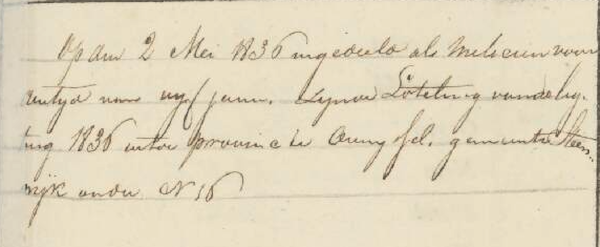 Op den 2 Mei 1836 ingedeeld als Milicien voor
den tyd van vyf jaren. Zynde Loteling van de lig-
ting 1836 uit de provincie Overyssel. gemeente Steen-
wijk onder N 56